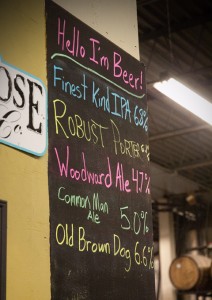 Hello I'm Beer!
Finest Kind IPA 6.8%
ROBUST PORTER
Woodward Ale 4.7%
Common Man
Ale 5.0%
Old Brown Dog 6.6%
OSE
Co.